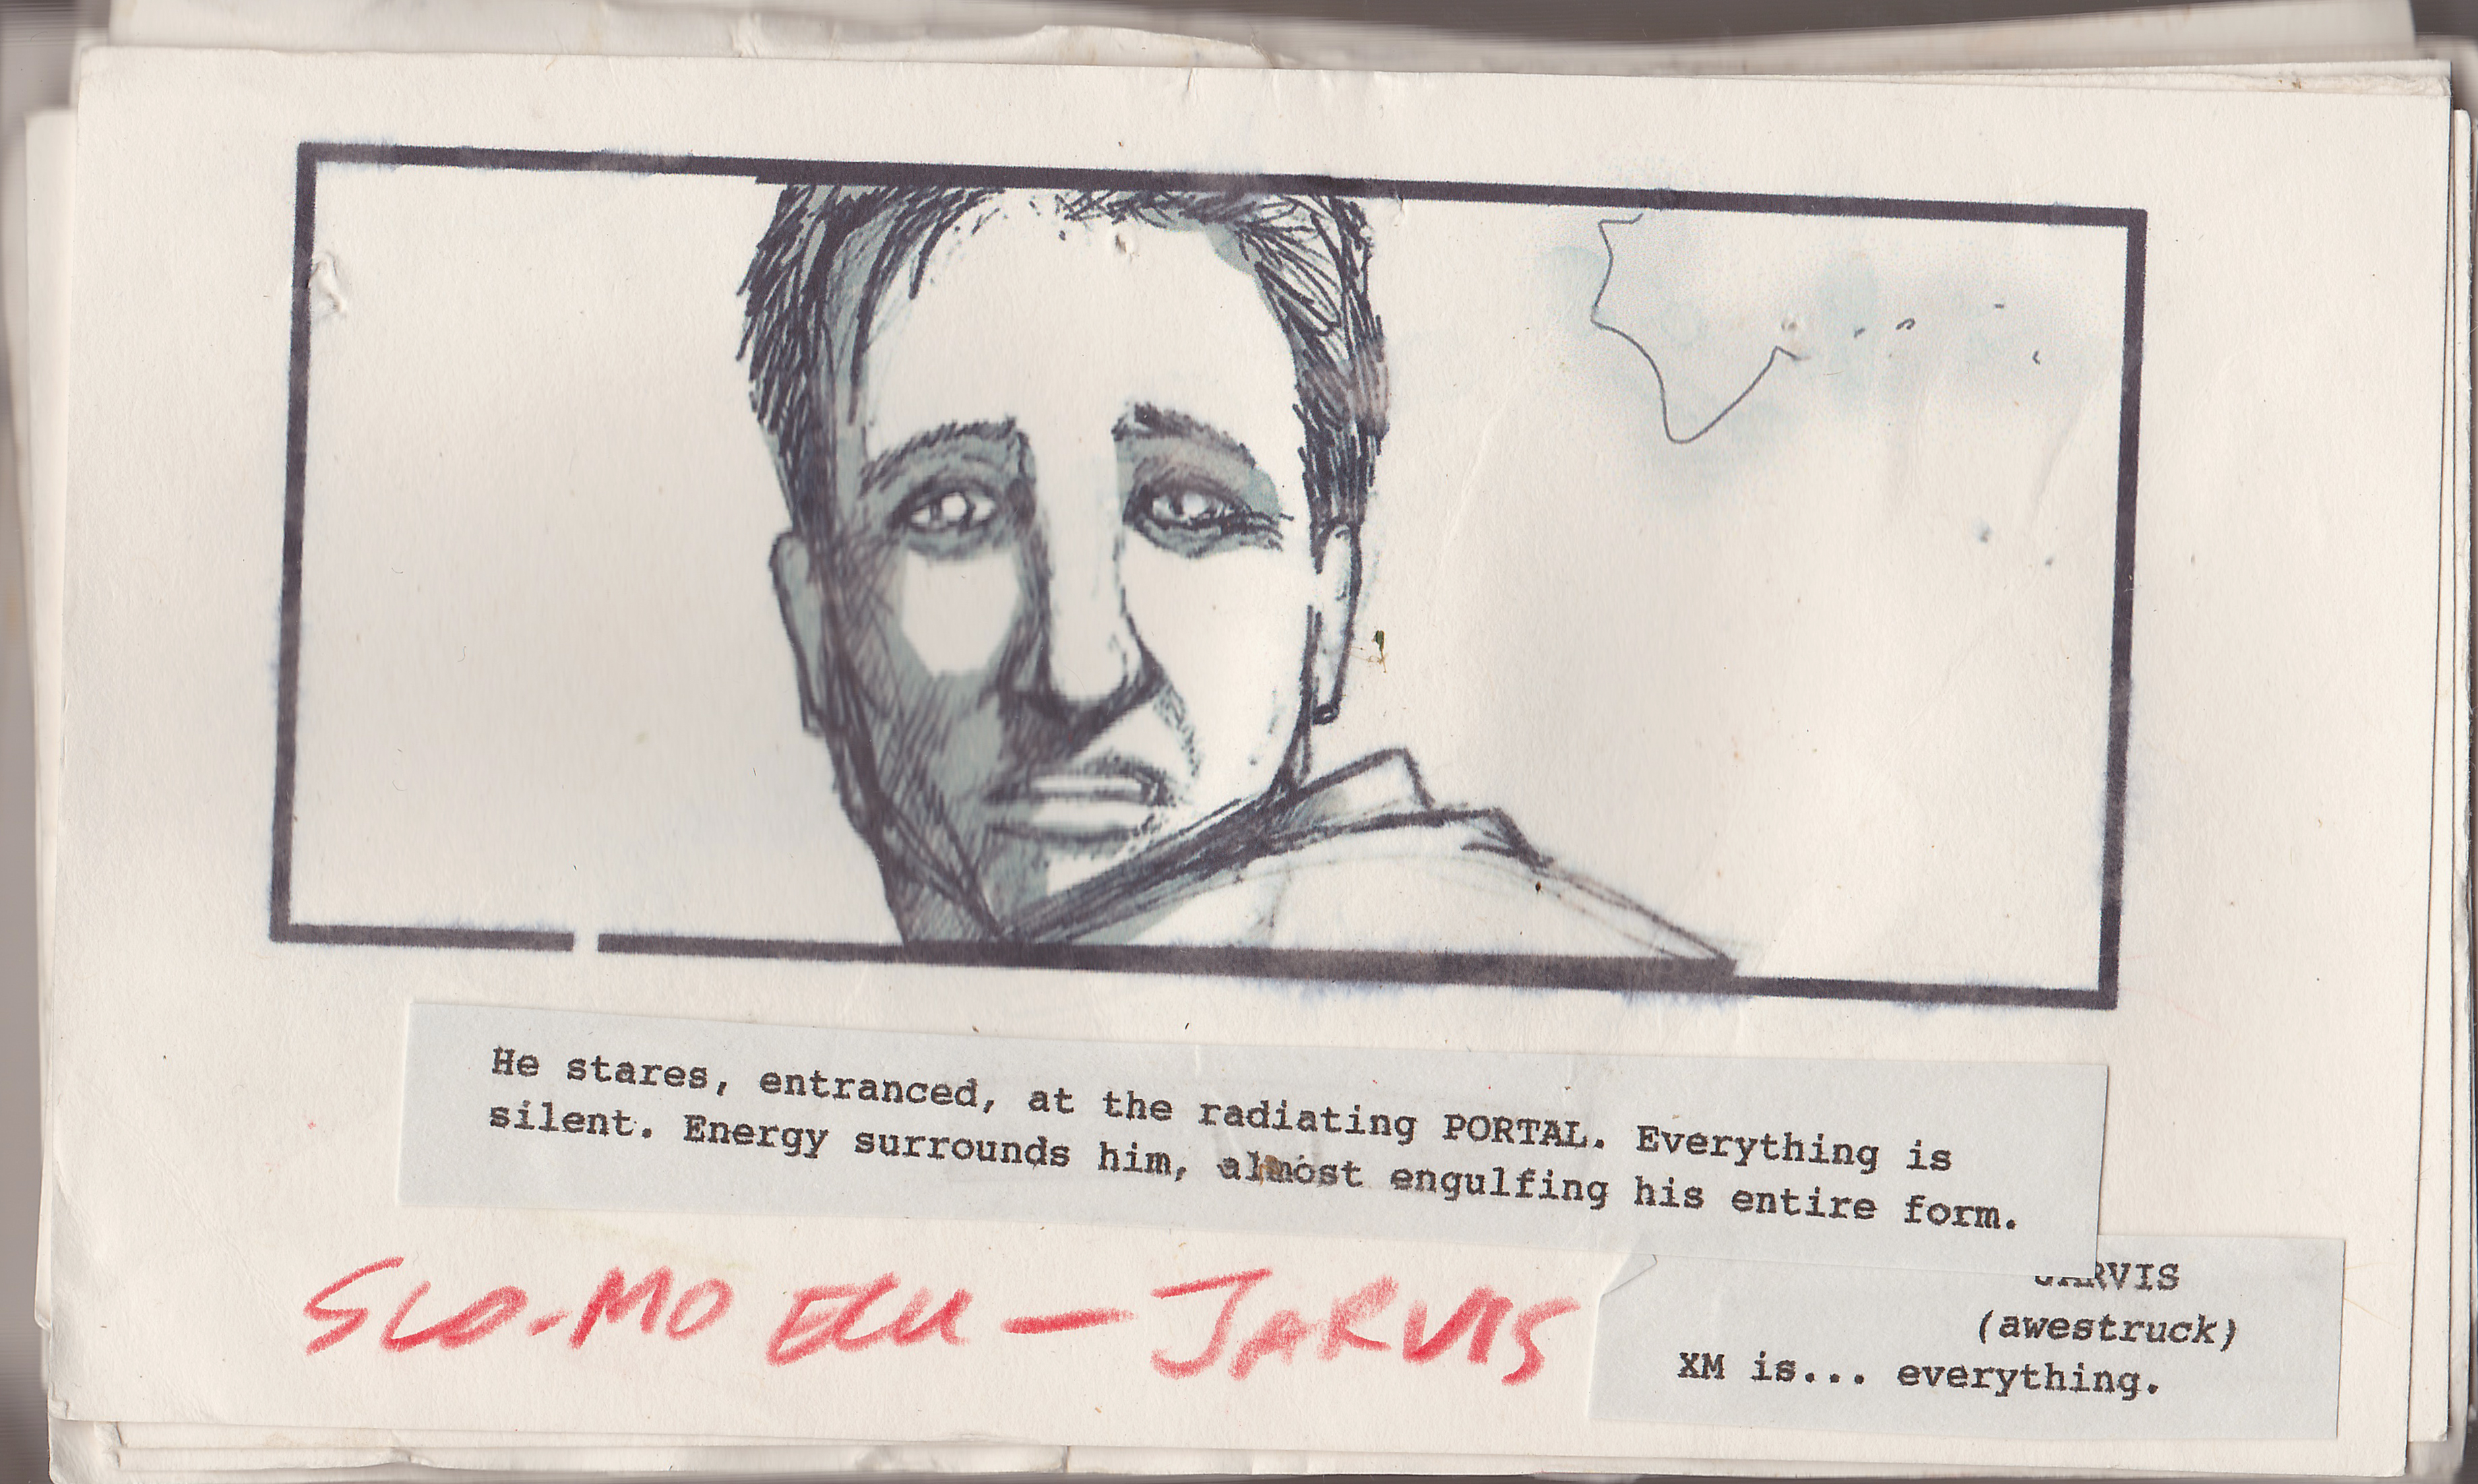 He stares, entranced, at the radiating PORTAL. Everything is
silent. Energy surrounds him, almost engulfing his entire form.
SLO-MO ECU — JARVIS
JARVIS
(awestruck)
XM is... everything.